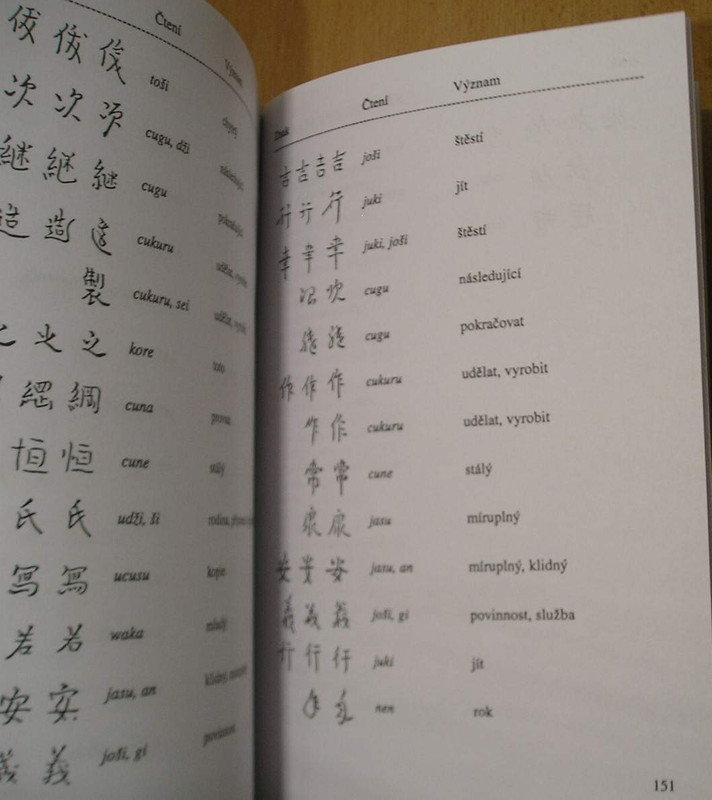 Čtení
俊 俊 俊 toši
次 次 次 cugu, dži
継 継 継 cugu
造 造 造 cukuru
製 cukuru, sei
之 之 之 kore
綱 綱 cuna
恒 恒 cune stálý
氏 氏 udži, ši
寫 寫 ucusu kopie
若 若 waka mladý
安 安 jasu, an
義 義 joši, gi povinnost
Znak Čtení Význam
吉 吉 吉 吉 joši štěstí
行 行 行 juki jít
幸 幸 幸 juki, joši štěstí
次 次 cugu následující
cugu pokračovat
作 作 作 cukuru udělat, vyrobit
作 作 cukuru udělat, vyrobit
常 常 cune stálý
康 康 jasu míruplný
安 安 安 jasu, an míruplný, klidný
義 義 義 joši, gi povinnost, služba
行 行 行 juki jít
年 年 nen rok
151